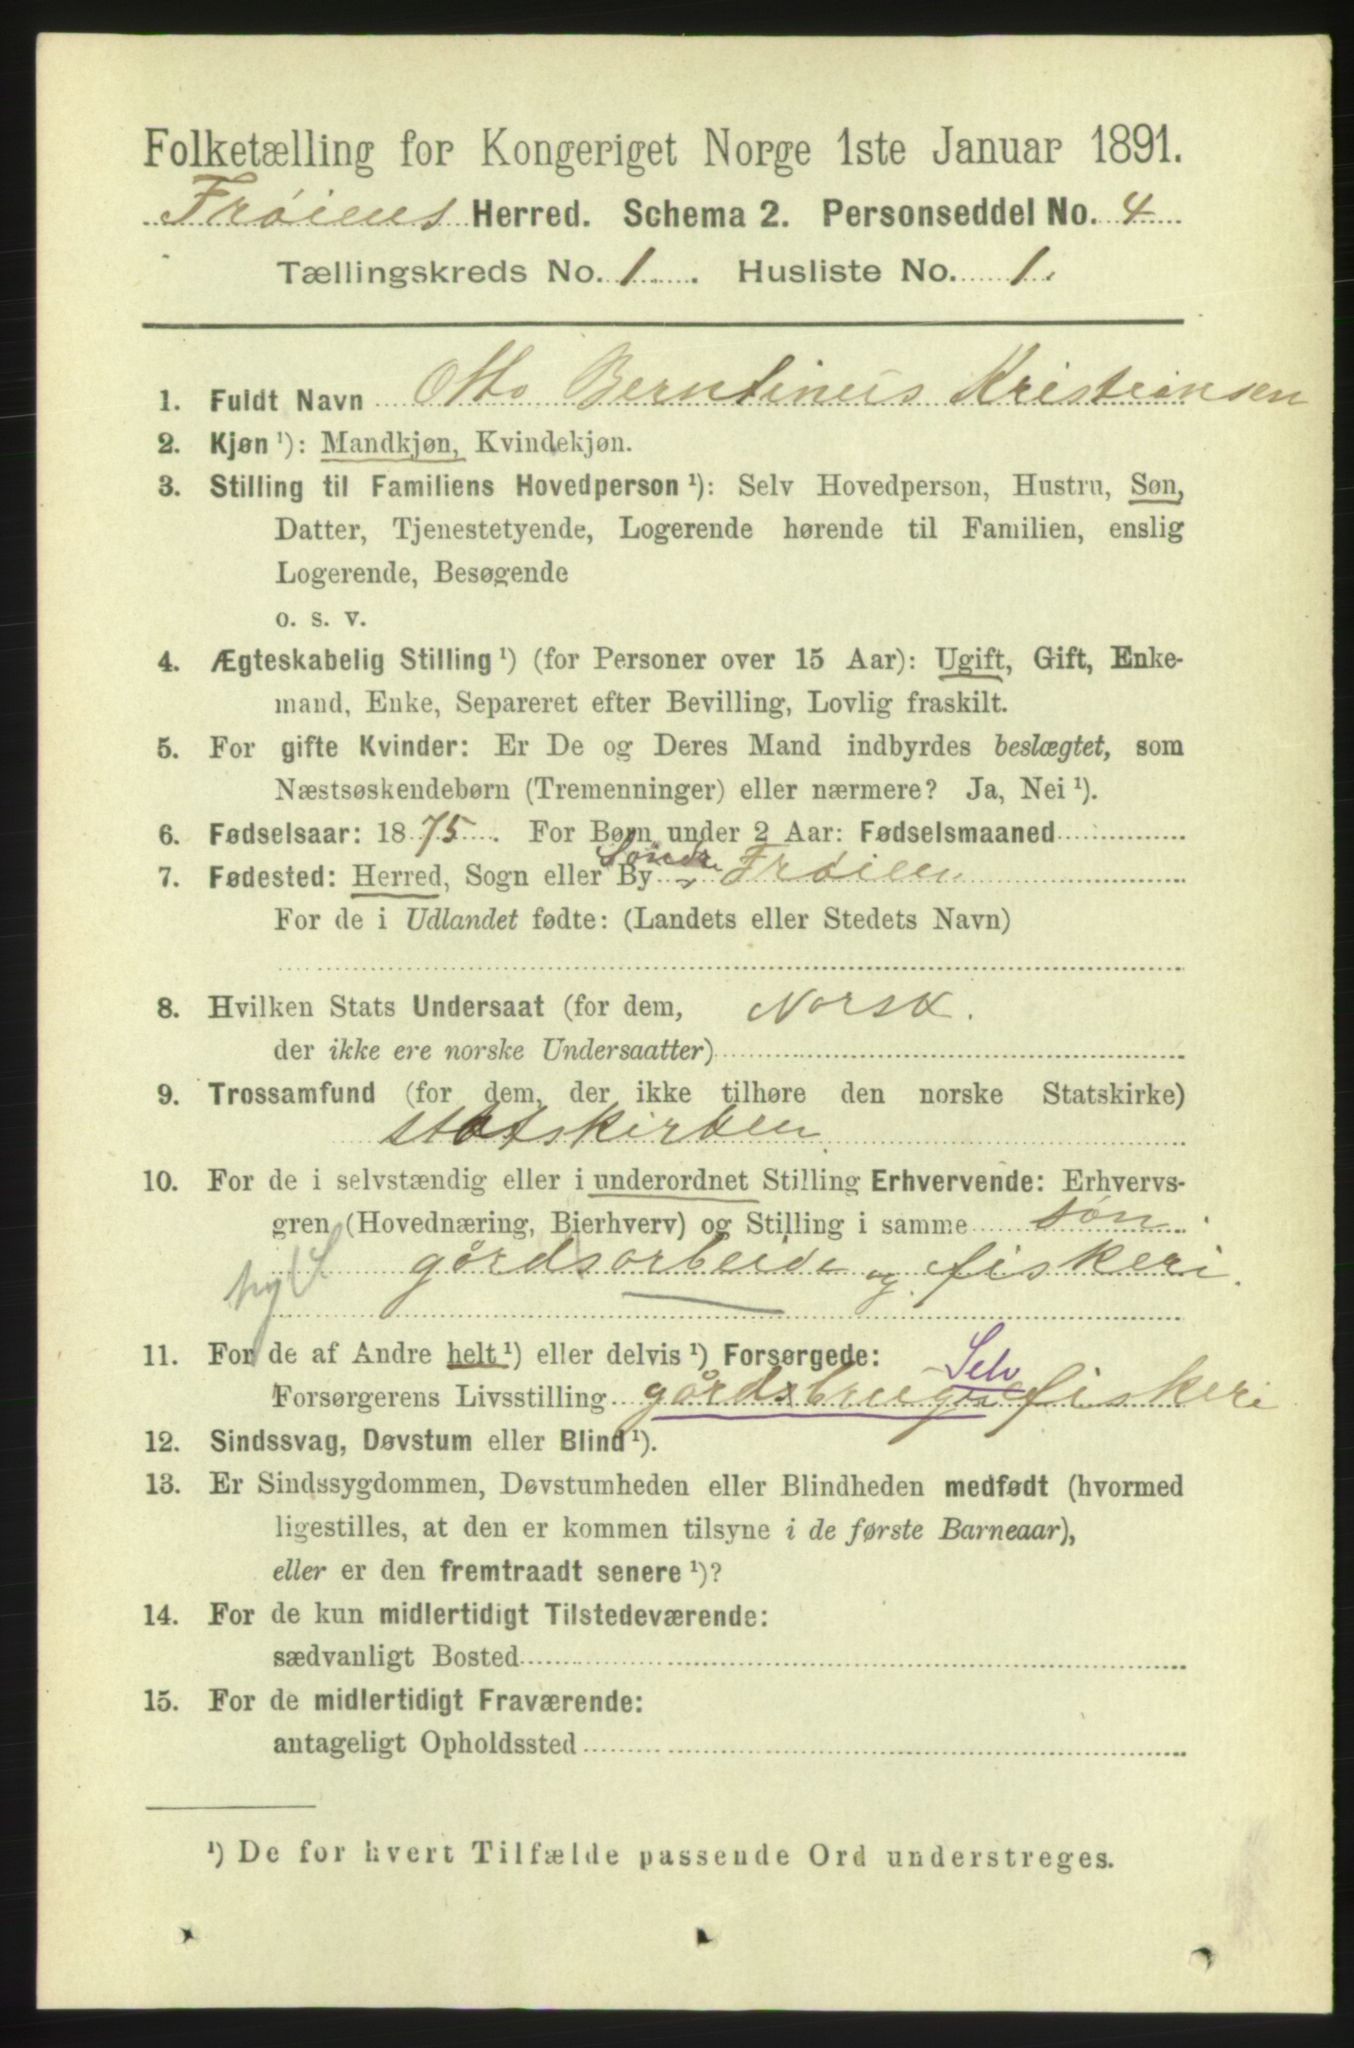 Folketælling for Kongeriget Norge 1ste Januar 1891.
Frøiens Herred. Schema 2. Personseddel No. 4
Tællingskreds No. 1. Husliste No. 1.
1. Fuldt Navn Otto Berntinus Kristiansen
2. Kjøn ¹): Mandkjøn, Kvindekjøn.
3. Stilling til Familiens Hovedperson ¹): Selv Hovedperson, Hustru, Søn,
Datter, Tjenestetyende, Logerende hørende til Familien, enslig
Logerende, Besøgende
o. s. v.
4. Ægteskabelig Stilling ¹) (for Personer over 15 Aar): Ugift, Gift, Enke-
mand, Enke, Separeret efter Bevilling, Lovlig fraskilt.
5. For gifte Kvinder: Er De og Deres Mand indbyrdes beslægtet, som
Næstsøskendebørn (Tremenninger) eller nærmere? Ja, Nei ¹).
6. Fødselsaar: 1875. For Børn under 2 Aar: Fødselsmaaned
7. Fødested: Herred, Sogn eller By Søndr Frøien
For de i Udlandet fødte: (Landets eller Stedets Navn)
8. Hvilken Stats Undersaat (for dem, Norsk.
der ikke ere norske Undersaatter)
9. Trossamfund (for dem, der ikke tilhøre den norske Statskirke)
statskirken
10. For de i selvstændig eller i underordnet Stilling Erhvervende: Erhvervs-
gren (Hovednæring, Bierhverv) og Stilling i samme søn
gårdsarbeide og fiskeri.
11. For de af Andre helt ¹) eller delvis ¹) Forsørgede: Selv
Forsørgerens Livsstilling gårdsbruger fiskeri
12. Sindssvag, Døvstum eller Blind ¹).
13. Er Sindssygdommen, Døvstumheden eller Blindheden medfødt (hvormed
ligestilles, at den er kommen tilsyne i de første Barneaar),
eller er den fremtraadt senere ¹)?
14. For de kun midlertidigt Tilstedeværende:
sædvanligt Bosted
15. For de midlertidigt Fraværende:
antageligt Opholdssted
¹) De for hvert Tilfælde passende Ord understreges.